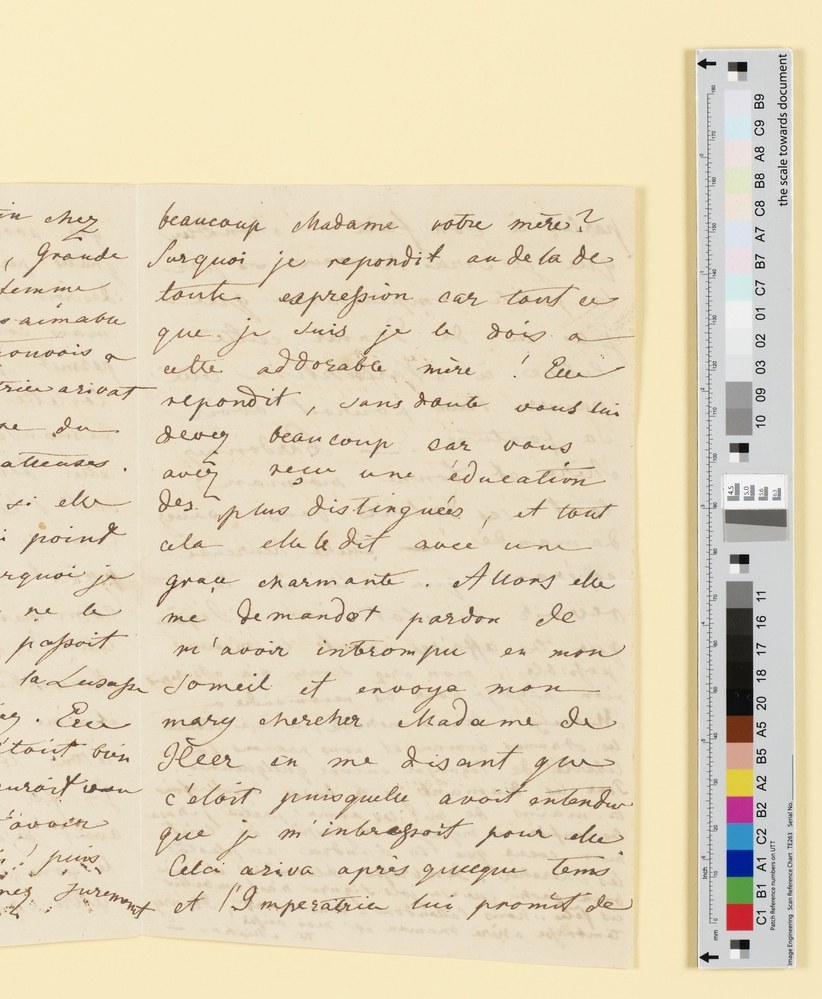 in chez
, Grande
femme
s aimable
ouvois a
trice arivat
ne du
atteuses.
si elle
i point
rquoi je
ne le
passoit
ez. Elle
étoit bien
avoir
! puis
nez surement
beaucoup Madame votre mère?
Surquoi je repondit au dela de
toute expression car tout ce
que je suis je le dois a
cette addorable mère ! Elle
repondit, sans doute vous lui
devez beaucoup car vous
avéz reçu une éducation
des plus distinguées, et tout
cela elle le dit avec une
graçe charmante. Allors elle
me demandat pardon de
m'avoir interompu en mon
someil et envoya mon
mary chercher Madame de
Heer en me disant que
c'étoit puisquelle avoit entendu
que je m'interessoit pour elle
Celà ariva après quelque tems
et l'Imperatrice lui promit de
the scale towards document
C1 B1 A1 C2 B2 A2 B5 A5 20 18 17 16 11
10 09 03 02 01 C7 B7 A7 C8 B8 A8 C9 B9
Patch Reference numbers on UTT
Image Engineering Scan Reference Chart TE263 Serial No.
mm
Inch